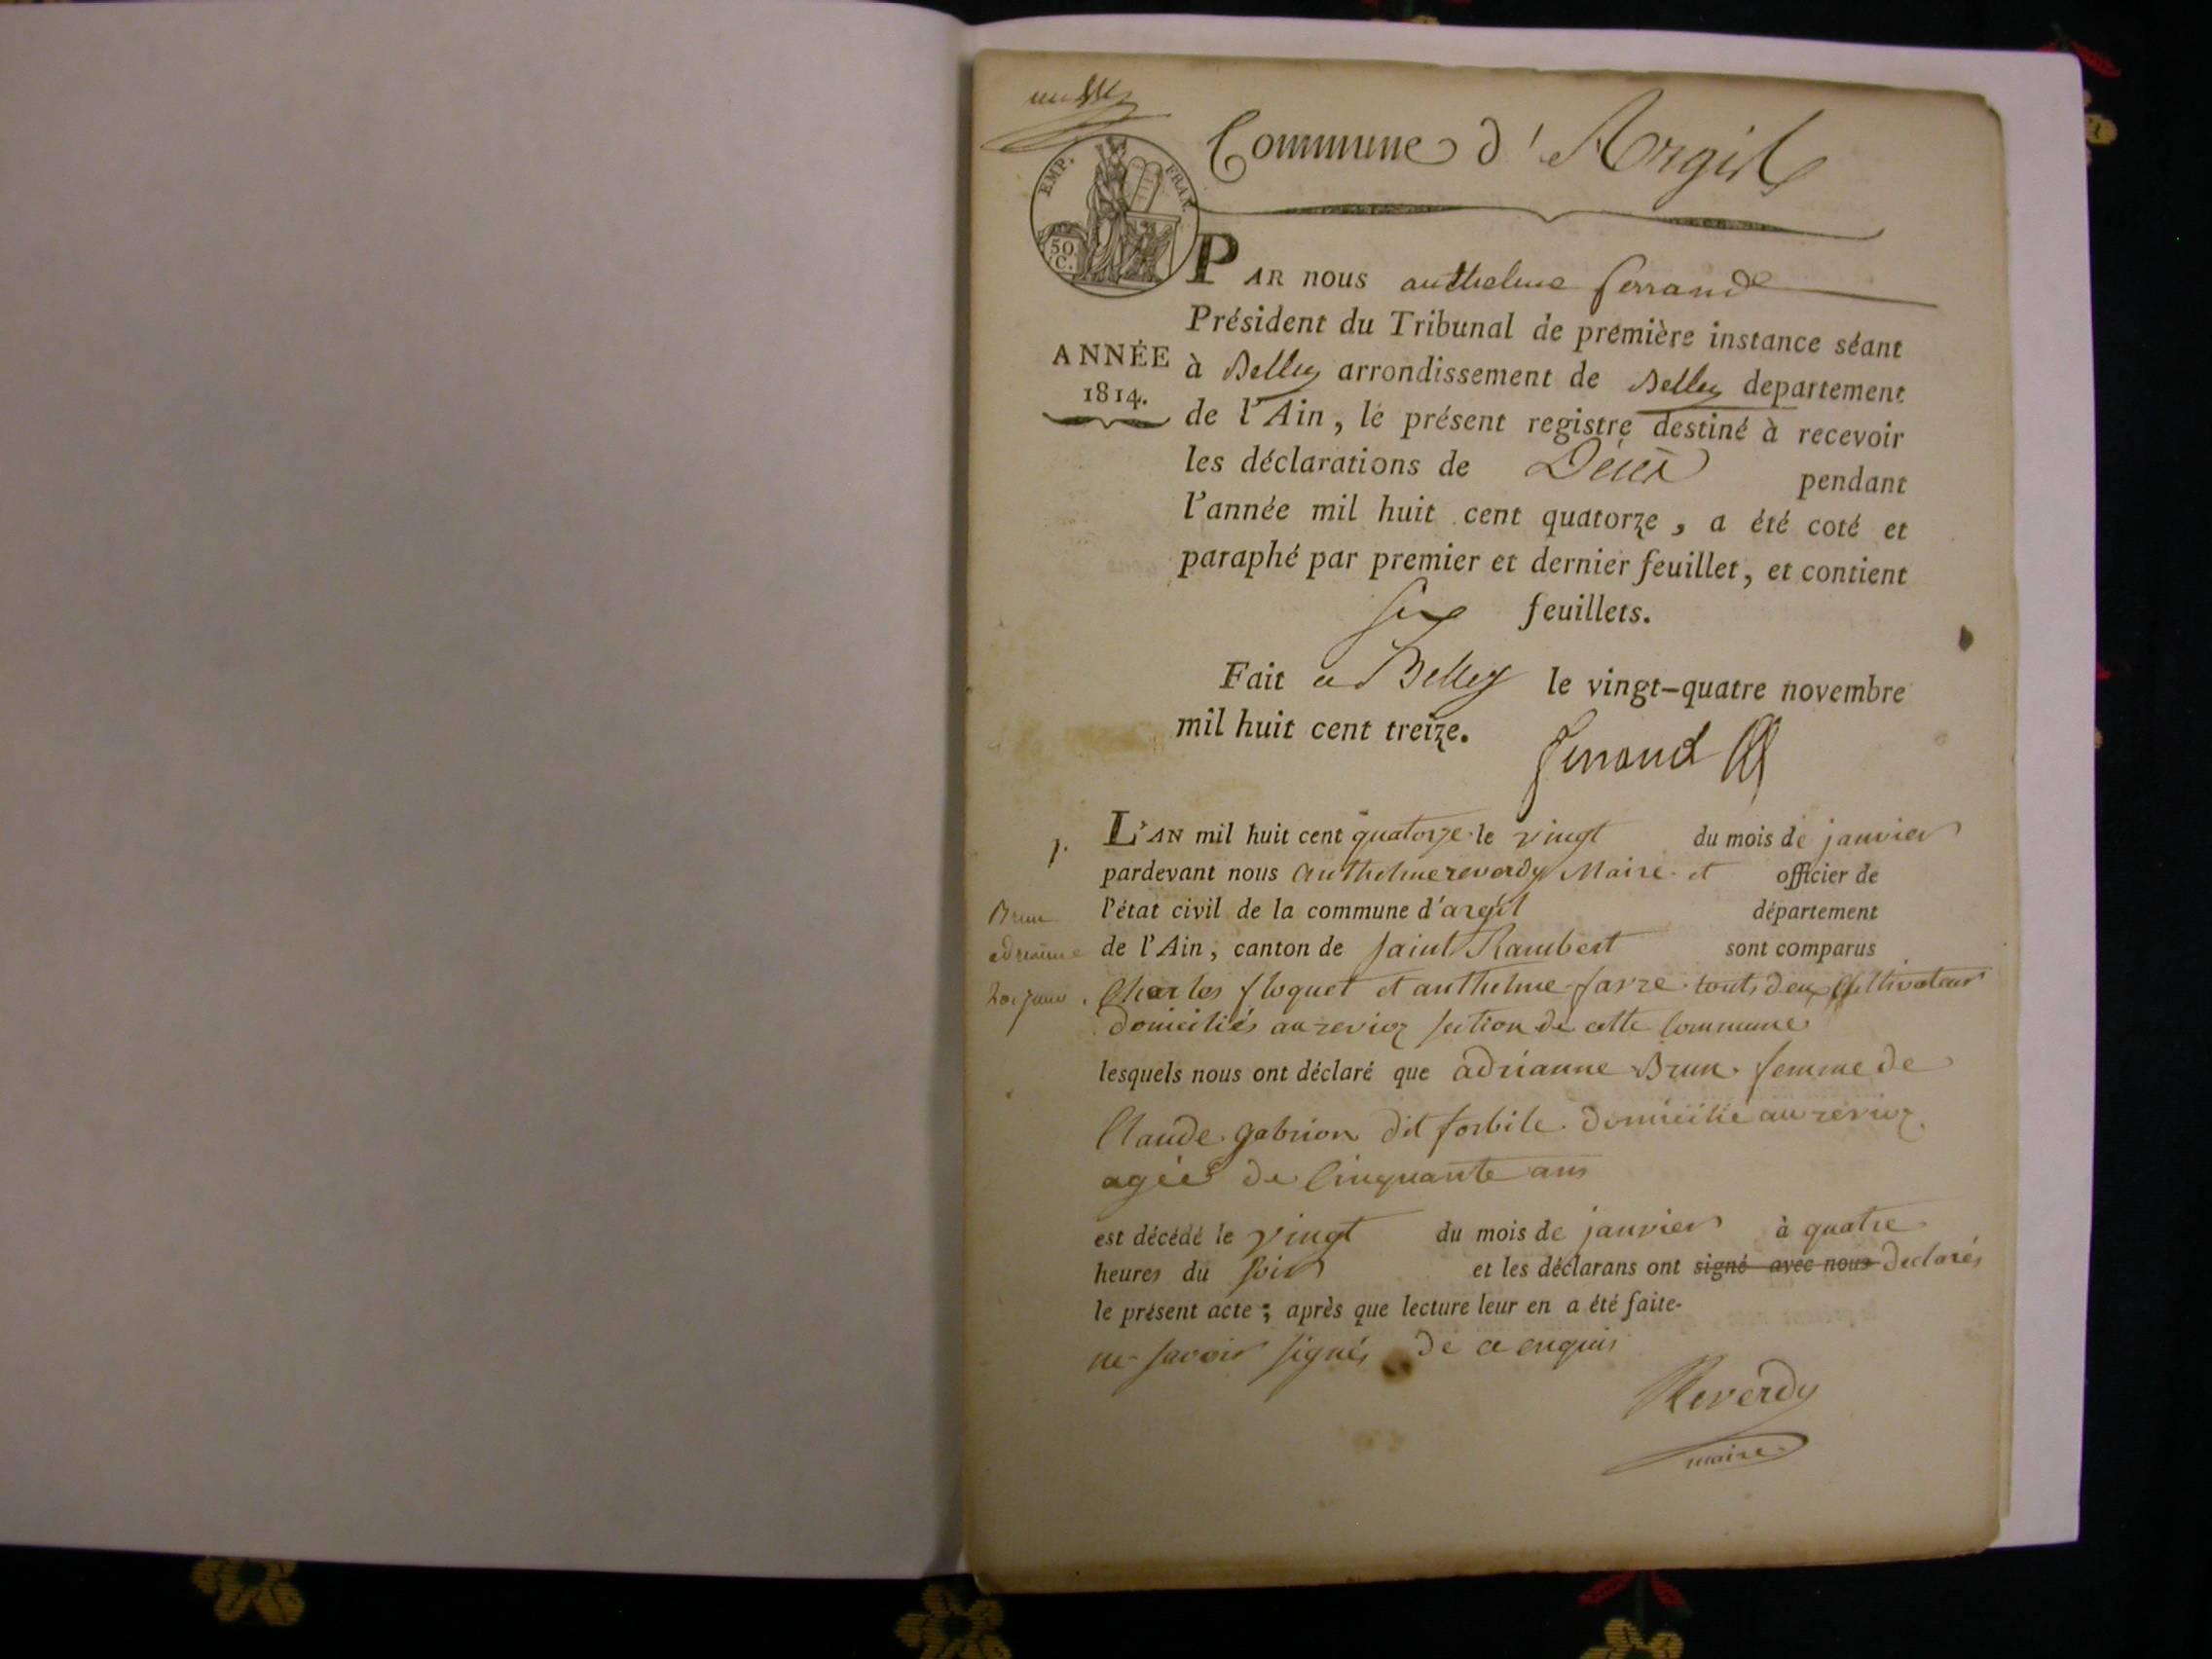 Commune d'Argil
EMP. FRAN.
50 C.
PAR nous anthelme ferrand
Président du Tribunal de première instance séant
ANNÉE
1814.
à Belley arrondissement de Belley departement
de l'Ain, le présent registre destiné à recevoir
les déclarations de Décès pendant
l'année mil huit cent quatorze, a été coté et
paraphé par premier et dernier feuillet, et contient
six feuillets.
Fait a Belley le vingt-quatre novembre
mil huit cent treize.
ferrand
1.
L'AN mil huit cent quatorze le vingt du mois de janvier
pardevant nous anthelme reverdy Maire et officier de
l'état civil de la commune d'argil département
de l'Ain, canton de saint Rambert sont comparus
Brun
adrianne
20 janv.
Charles floquet et anthelme favre touts deux Cultivateur
domiciliés au revior section de cette Commune
lesquels nous ont déclaré que adrianne Brun femme de
Claude gabrion dit forbile domicilié au revior
agée de Cinquante ans
est décédé le vingt du mois de janvier à quatre
heures du soir et les déclarans ont signé avec nous declarés
le présent acte ; après que lecture leur en a été faite.
ne savoir signés de ce enquis
Reverdy
maire